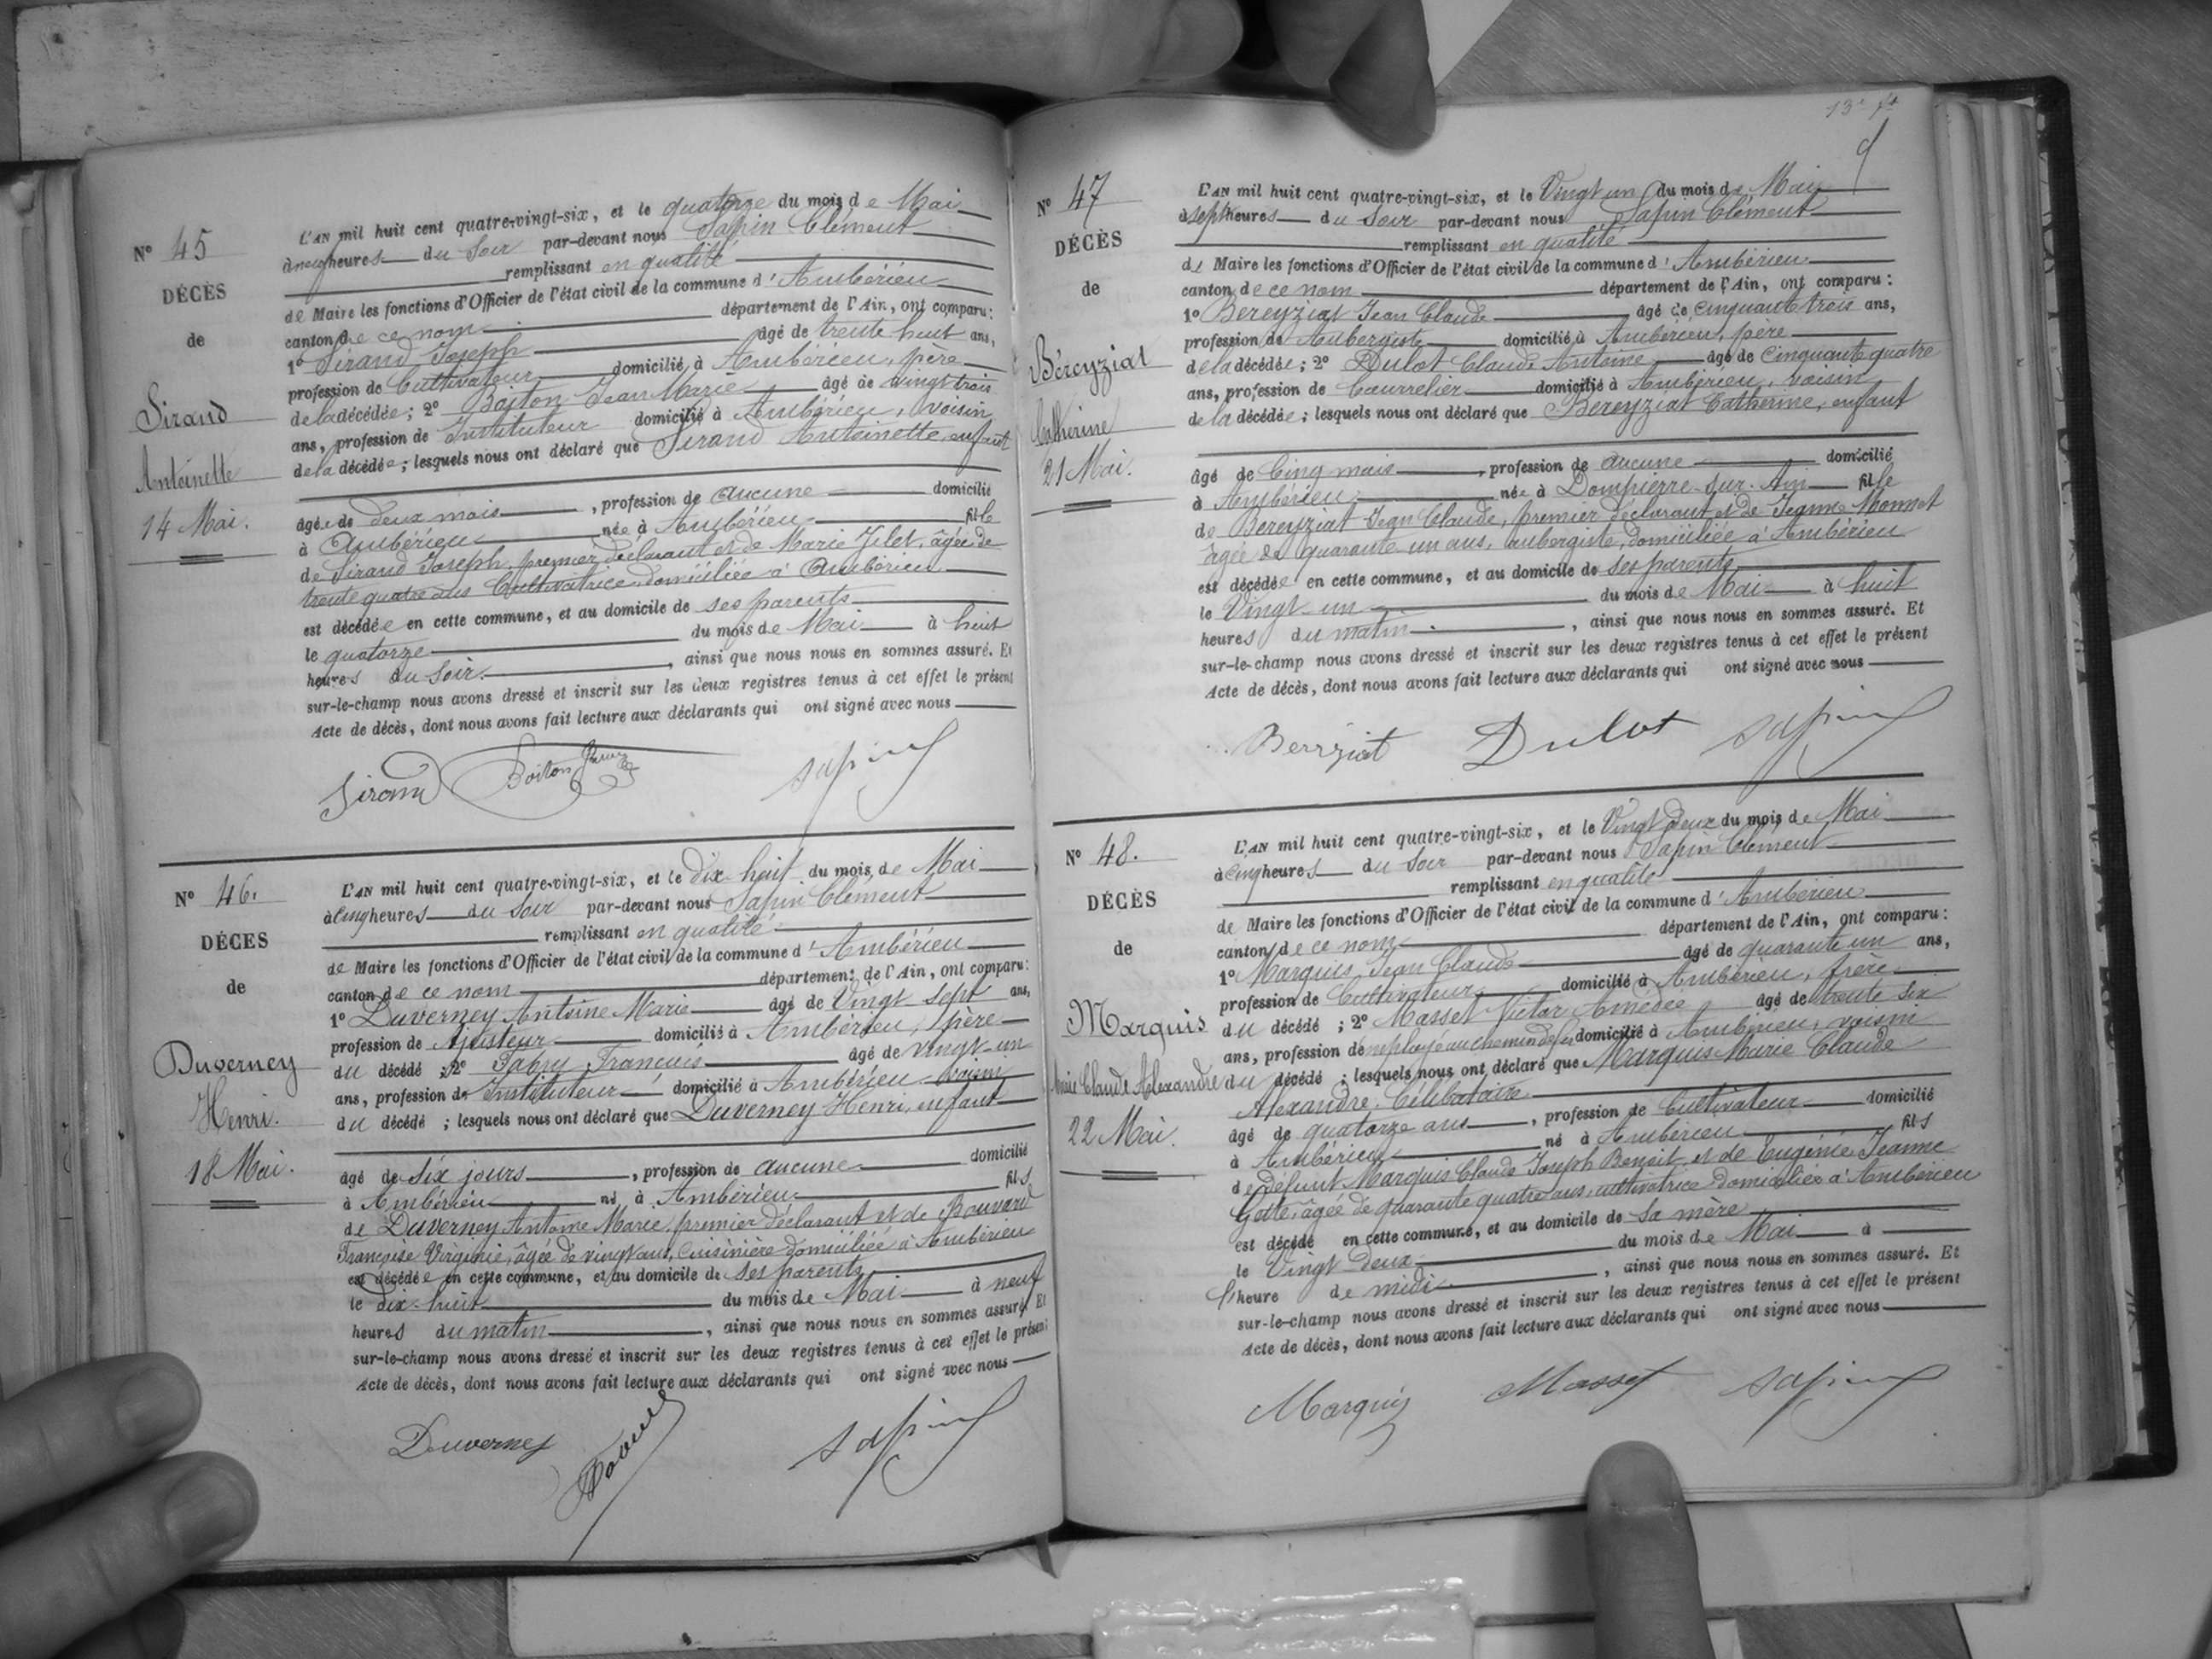 Nº 45
DÉCÈS
de
Sirand
Antoinette
14 Mai.
L'AN mil huit cent quatre-vingt-six, et le quatorze du mois de Mai
à neuf heures du Soir par-devant nous Sapin Clément
remplissant en qualité
de Maire les fonctions d'Officier de l'état civil de la commune d'Ambérieu
canton de ce nom département de l'Ain, ont comparu:
1º Sirand Joseph âgé de trente huit ans,
profession de Cultivateur domicilié à Ambérieu, père
de la décédée; 2º Boiton Jean Marie âgé de vingt trois
ans, profession de Instituteur domicilié à Ambérieu, voisin
de la décédée; lesquels nous ont déclaré que Sirand Antoinette, enfant
âgée de deux mois, profession de aucune domicilié
à Ambérieu née à Ambérieu fille
de Sirand Joseph, premier déclarant et de Marie Jilet, âgée de
trente quatre ans Cultivatrice domiciliée à Ambérieu
est décédée en cette commune, et au domicile de ses parents
le quatorze du mois de Mai à huit
heures du Soir, ainsi que nous nous en sommes assuré. Et
sur-le-champ nous avons dressé et inscrit sur les deux registres tenus à cet effet le présent
Acte de décès, dont nous avons fait lecture aux déclarants qui ont signé avec nous
Sirand Boiton Sapin
Nº 46.
DÉCES
de
Duverney
Henri.
18 Mai.
L'AN mil huit cent quatre-vingt-six, et le dix-huit du mois de Mai
à cinq heures du Soir par-devant nous Sapin Clément
remplissant en qualité
de Maire les fonctions d'Officier de l'état civil de la commune d'Ambérieu
canton de ce nom département de l'Ain, ont comparu:
1º Duverney Antoine Marie âgé de Vingt sept ans,
profession de Ajusteur domicilié à Ambérieu, père
du décédé; 2º Fabry François âgé de vingt-un
ans, profession de Instituteur domicilié à Ambérieu voisin
du décédé; lesquels nous ont déclaré que Duverney Henri, enfant
âgé de Six jours, profession de aucune domicilié
à Ambérieu né à Ambérieu fils
de Duverney Antoine Marie, premier déclarant et de Bouvard
Françoise Virginie, âgée de vingt ans, Cuisinière domiciliée à Ambérieu
est décédée en cette commune, et au domicile de ses parents
le dix-huit du mois de Mai à neuf
heures du matin, ainsi que nous nous en sommes assuré. Et
sur-le-champ nous avons dressé et inscrit sur les deux registres tenus à cet effet le présent
Acte de décès, dont nous avons fait lecture aux déclarants qui ont signé avec nous
Duverney Sapin
Nº 47
DÉCÈS
de
Béreyziat
Catherine
21 Mai.
L'AN mil huit cent quatre-vingt-six, et le Vingt un du mois de Mai
à sept heures du Soir par-devant nous Sapin Clément
remplissant en qualité
de Maire les fonctions d'Officier de l'état civil de la commune d'Ambérieu
canton de ce nom département de l'Ain, ont comparu:
1º Bereyziat Jean Claude âgé de cinquante trois ans,
profession de Aubergiste domicilié à Ambérieu, père
de la décédée; 2º Dulot Claude Antoine âgé de cinquante quatre
ans, profession de Courrelier domicilié à Ambérieu, voisin
de la décédée; lesquels nous ont déclaré que Bereyziat Catherine, enfant
âgé de Cinq mois, profession de aucune domicilié
à Ambérieu née à Dompierre-sur-Ain fille
de Bereyziat Jean Claude, premier déclarant et de Jeanne Monnet
âgée de quarante un ans, aubergiste, domiciliée à Ambérieu
est décédée en cette commune, et au domicile de ses parents
le Vingt-un du mois de Mai à huit
heures du matin, ainsi que nous nous en sommes assuré. Et
sur-le-champ nous avons dressé et inscrit sur les deux registres tenus à cet effet le présent
Acte de décès, dont nous avons fait lecture aux déclarants qui ont signé avec nous
Bereziat Dulot Sapin
Nº 48.
DÉCÈS
de
Marquis
Marie Claude Alexandre
22 Mai.
L'AN mil huit cent quatre-vingt-six, et le Vingt deux du mois de Mai
à cinq heures du Soir par-devant nous Sapin Clément
remplissant en qualité
de Maire les fonctions d'Officier de l'état civil de la commune d'Ambérieu
canton de ce nom département de l'Ain, ont comparu:
1º Marquis Jean Claude âgé de quarante un ans,
profession de Cultivateur domicilié à Ambérieu, frère
du décédé; 2º Masset Victor Amédée âgé de trente six
ans, profession de employé au chemin de fer domicilié à Ambérieu, voisin
du décédé; lesquels nous ont déclaré que Marquis Marie Claude
Alexandre, Célibataire
âgé de quatorze ans, profession de Cultivateur domicilié
à Ambérieu né à Ambérieu fils
de défunt Marquis Claude Joseph Benoit et de Eugénie Jeanne
âgée de quarante quatre ans, cultivatrice domiciliée à Ambérieu
est décédé en cette commune, et au domicile de sa mère
le Vingt-deux du mois de Mai à
heure de midi, ainsi que nous nous en sommes assuré. Et
sur-le-champ nous avons dressé et inscrit sur les deux registres tenus à cet effet le présent
Acte de décès, dont nous avons fait lecture aux déclarants qui ont signé avec nous
Marquis Masset Sapin